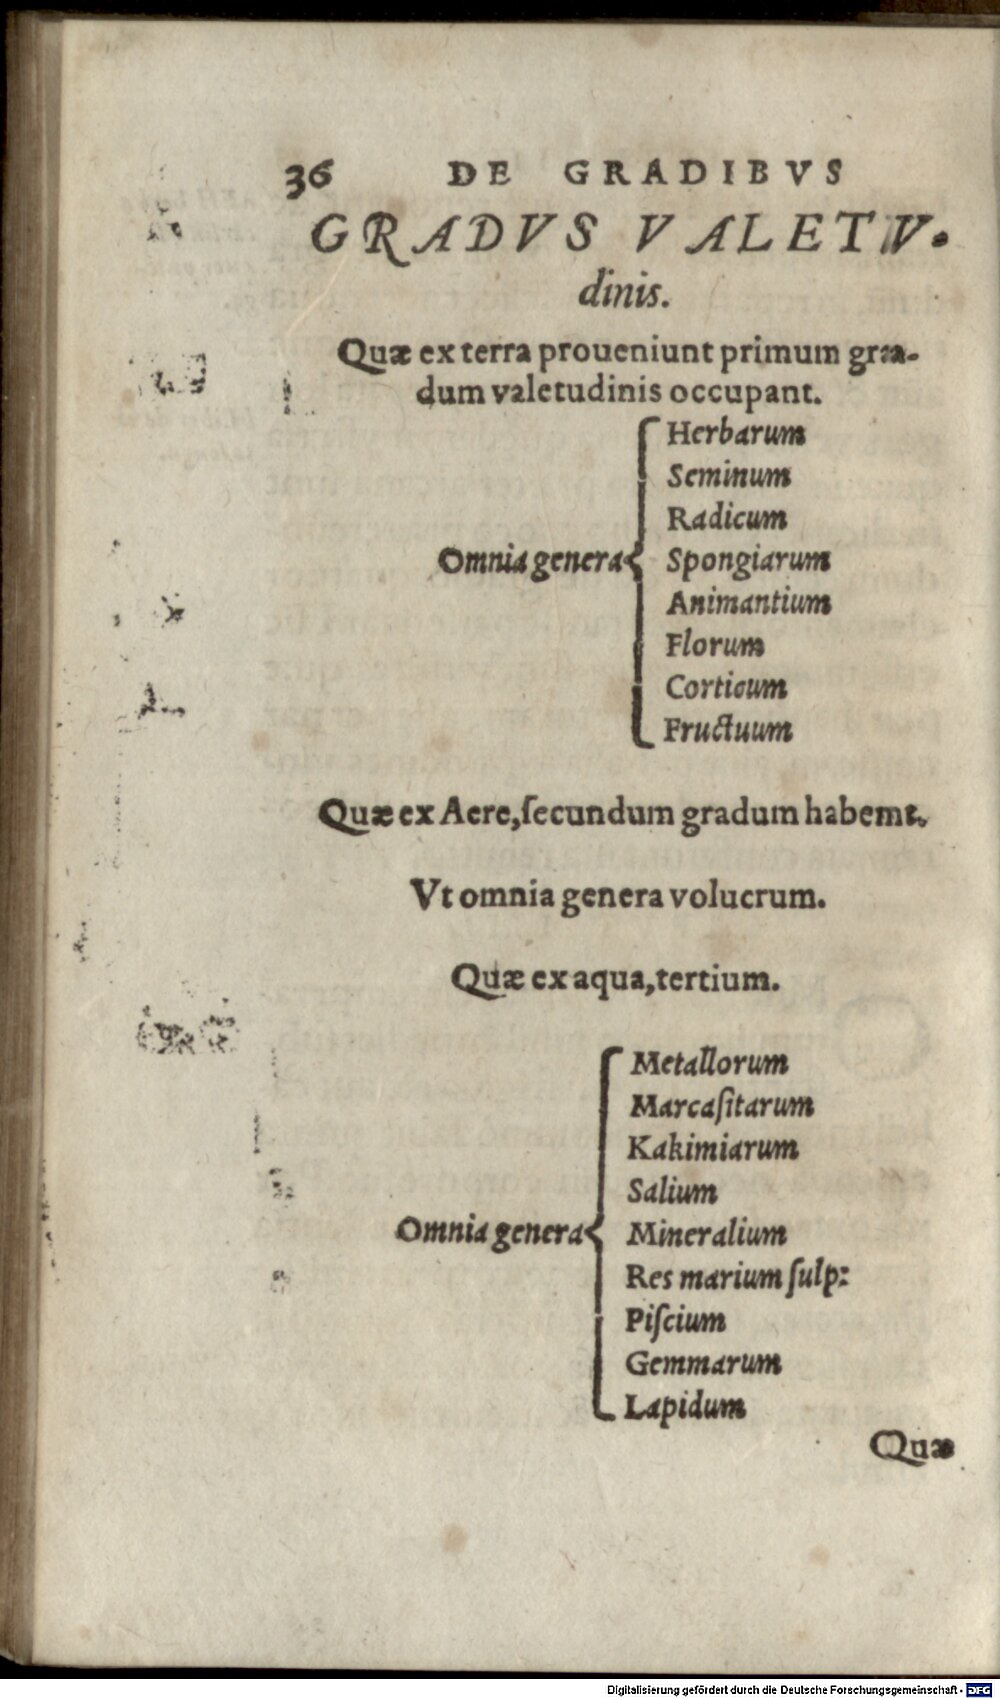 36 DE GRADIBVS
GRADVS VALETV-
dinis.
Quæ ex terra proueniunt primum graa-
dum valetudinis occupant.
Herbarum
Seminum
Radicum
Omnia genera Spongiarum
Animantium
Florum
Corticum
Fructuum
Quæ ex Aere, ſecundum gradum habemt.
Vt omnia genera volucrum.
Quæ ex aqua, tertium.
Metallorum
Marcaſitarum
Kakimiarum
Salium
Omnia genera Mineralium
Res marium ſulp:
Piſcium
Gemmarum
Lapidum
Quæ
Digitalisierung gefördert durch die Deutsche Forschungsgemeinschaft - DFG